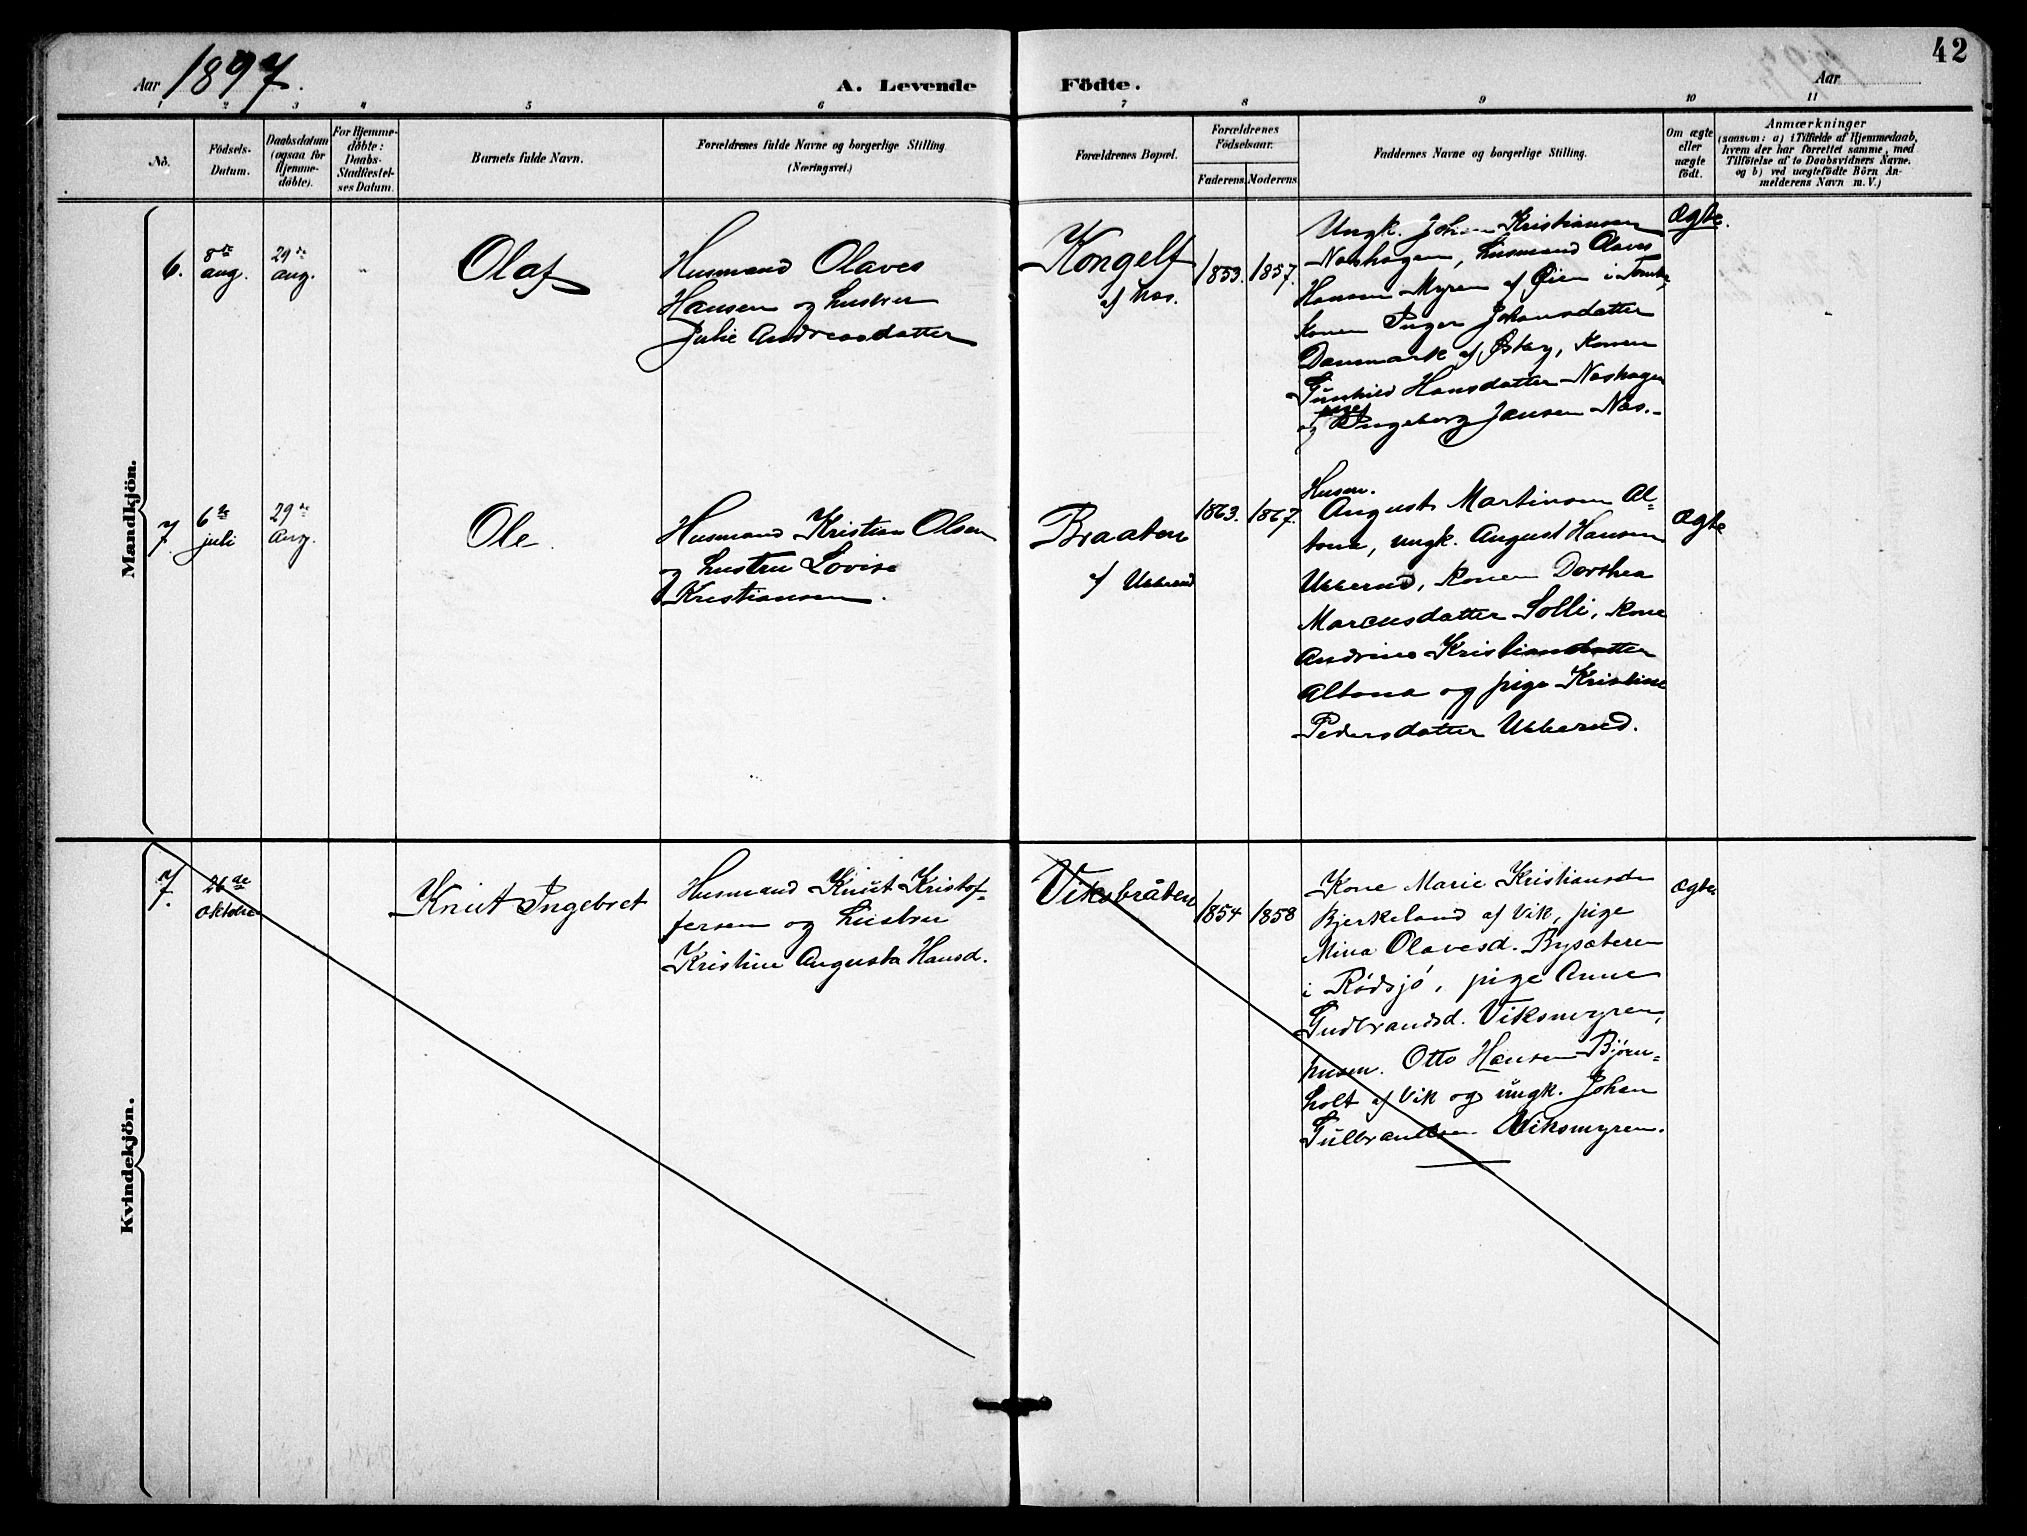 42
Aar 1897.
A. Levende Födte.
Aar
1 2 3 4 5 6 7 8 9 10 11
No.
Födsels-
Datum.
Daabsdatum
(ogsaa for
Hjemme-
døbte).
For Hjemme-
døbte:
Daabs-
Stadfæstel-
ses Datum.
Barnets fulde Navn.
Forældrenes fulde Navne og borgerlige Stilling
(Næringsvei.)
Forældrenes Bopæl.
Forældrenes
Födselsaar.
Faderens. Moderens.
Faddernes Navne og borgerlige Stilling.
Om ægte
eller
uægte
födt.
Anmærkninger
(saasom: a) i Tilfælde af Hjemmedaab,
hvem der har forrettet samme, med
Tilföielse af to Daabsvidners Navne,
og b) ved uægtefødte Börn An-
melderens Navn m. V.)
Mandkjön.
6.
8de
aug.
29de
aug.
Olaf
Husmand Olaves
Hansen og hustru
Julie Andreasdatter
Kongelf
af Næs.
1853.
1857.
Ungk. Johan Kristiansen
Næshagen, husmand Olaves
Hansen Myren af Øien i
Konen Inger Johansdatter
Danmark af Østby, Konen
Gunhild Hansdatter Næshagen
og pige Ingeborg Jansen Næs.
Ægte.
7.
6te
juli
29de
Aug.
Ole
Husmand Kristian Olsen
og hustru Lovise
Kristiansen.
Braaten
af Ubberud
1863.
1867.
Husm.
August Martinsen Al-
tona, ungk. August Hansen
Ubberud, Konen Dorthea
Marcusdatter Solli, Kone
Andrine Kristiansdatter
Altona og pige Kristine
Pedersdatter Ubberud.
Ægte
Kvindekjön.
7.
26de
Oktobr
Knut Ingebret
Husmand Knut Kristof-
fersen og hustru
Kristine Augusta Hansd.
Viksbråten
1854
1858
Kone Marie Kristiansd
Bjerkeland af Vik, pige
Mina Olavesd. Bysæteren
i Rødsjö, pige Anne
Gudbrandsd. Viksmyren,
husm. Otto Hansen Björn-
holt af Vik og ungk. Johan
Gulbrandsen Viksmyren.
Ægte